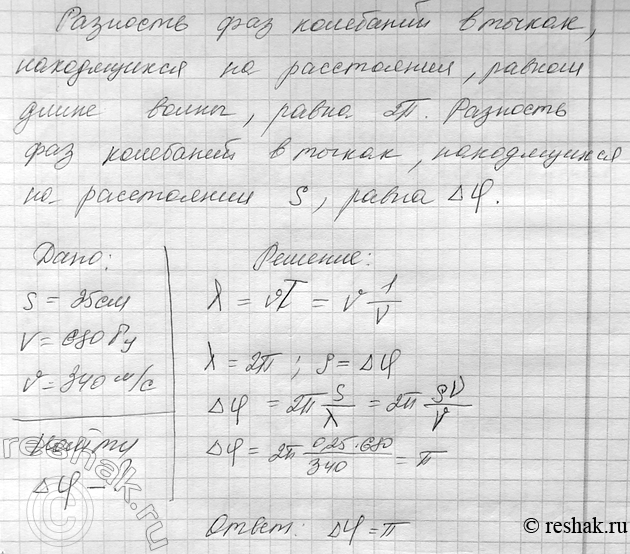 Разность фаз колебаний в точках,
находящихся на расстоянии, равном
длине волны, равна 2π. Разность
фаз колебаний в точках, находящихся
на расстоянии S, равна Δφ.
Дано:
S = 25см
ν = 680 Гц
v = 340 м/с
Найти
Δφ –
Решение:
λ = vT = v 1/ν
λ = 2π ; S = Δφ
Δφ = 2π S/λ = 2π Sν/v
Δφ = 2π 0,25·680/340 = π
Ответ: Δφ = π
reshak.ru
© reshak.ru